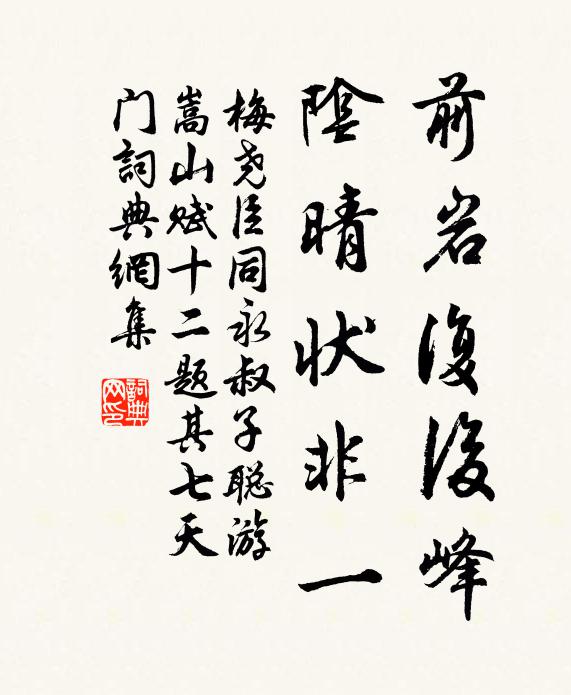 前岩復後峰
陰晴状非一
梅尧臣同永叔子聪游
嵩山赋十二题其七天
门詞典網集
詞典
网印